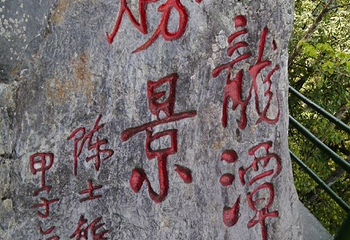 龍潭
勝景
陈士
甲子